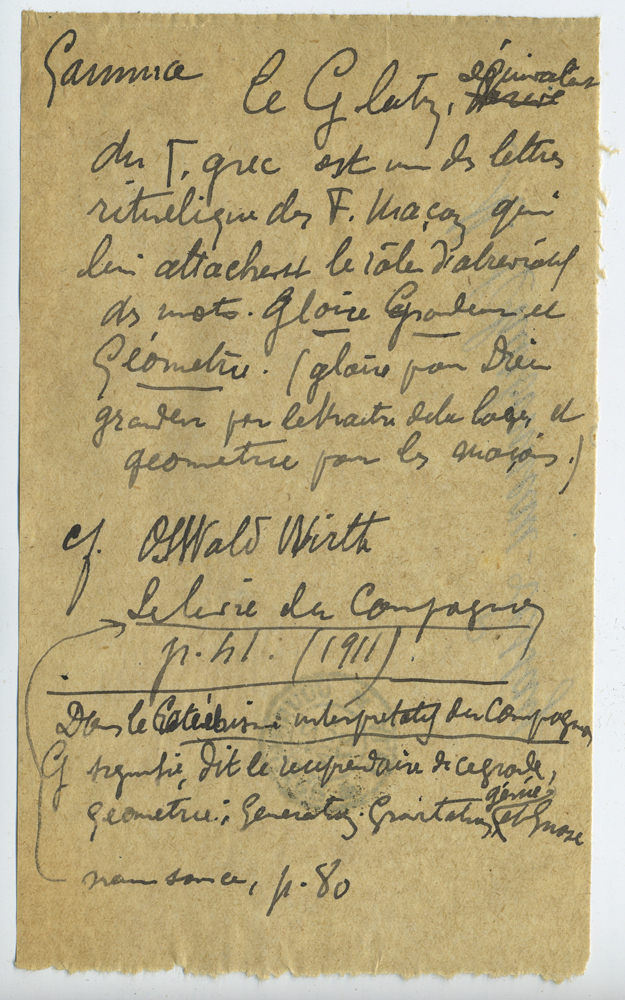 Gamma
Le G latin, équivalent
du Γ. grec est un des lettres
rituelique des F. Maçon qui
lui attachent le rôle d'abréviatif
des mots. Gloire Grandeur et
Géométrie. (gloire pour Dieu
grandeur pour le Maitre de la loge et
géometrie pour les maçons.)
cf. OSWald Wirth
Le livre du Compagnon
p. (1911).
Dans le Catéchisme interpretatif du Compagnon
G signifie, dit le recipiendaire de ce grade,
géometrie; Generation. Gravitation, génie et Gnose
p. 80